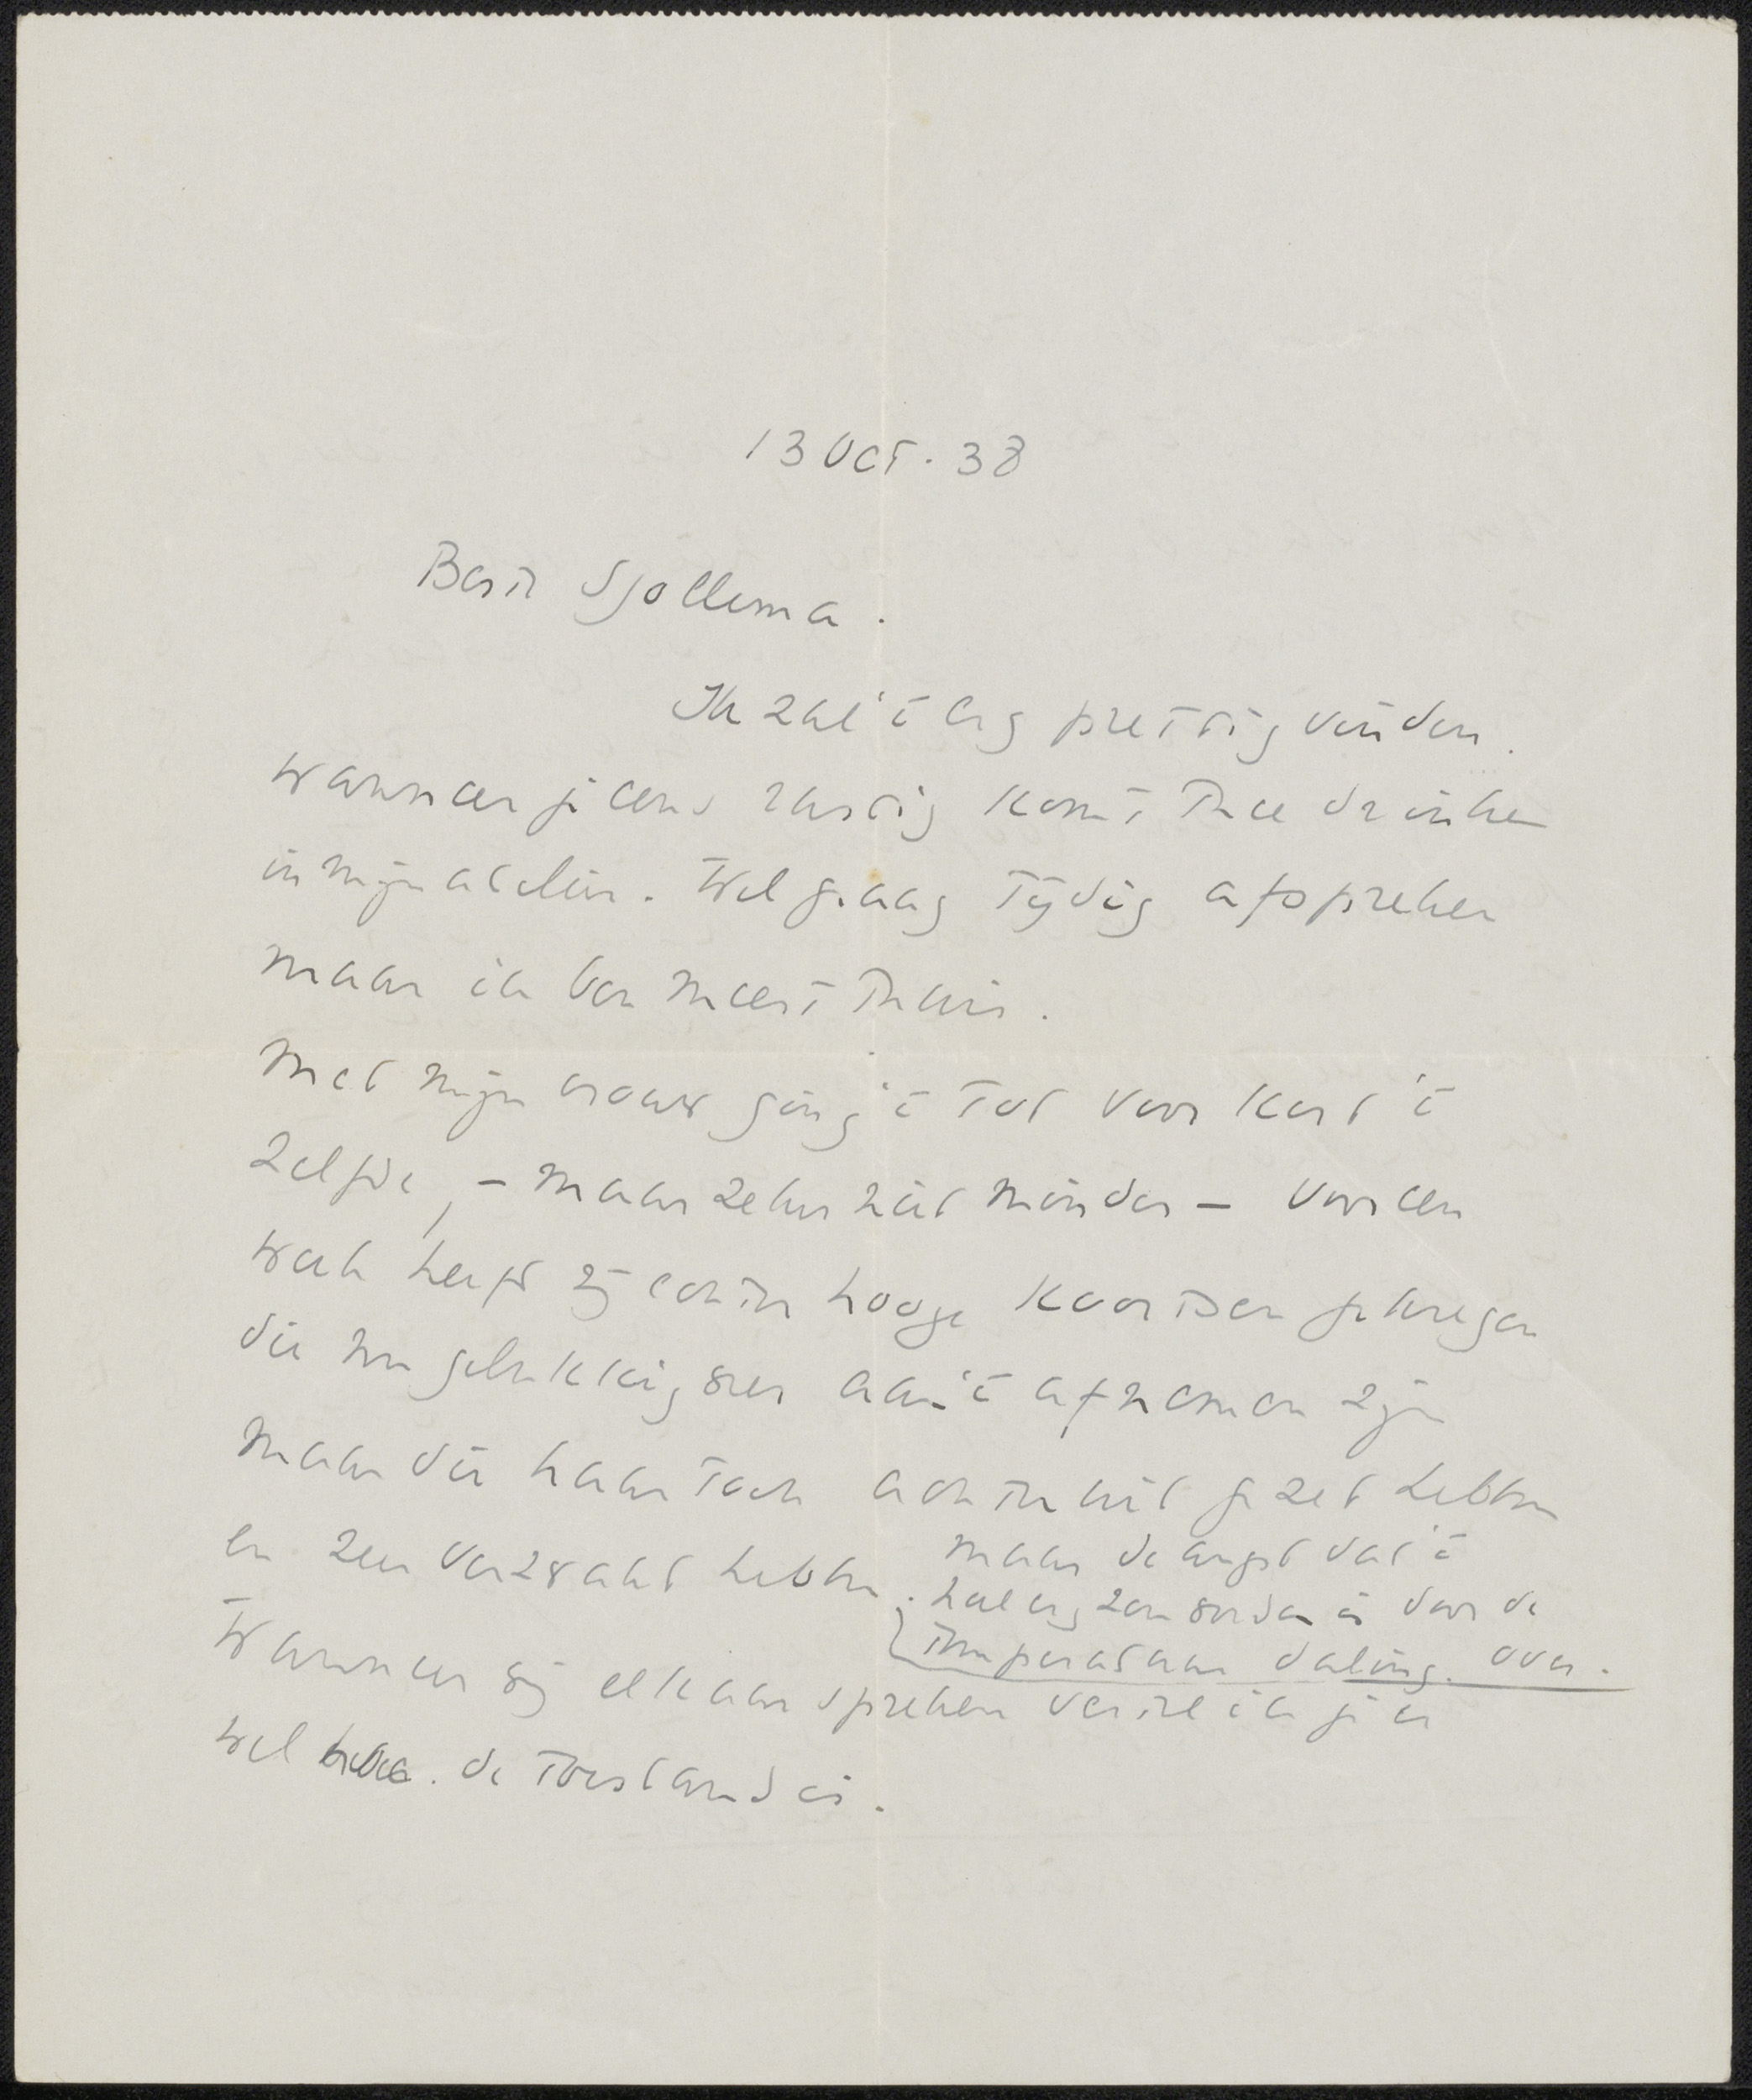 13 Oct. 38
Beste Sjollema.
Ik zal 't erg prettig vinden.
wanneer je eens rustig komt thee drinken
in mijn atelier. Wel graag tijdig afspreken
maar ik ben meest thuis.
Met mijn vrouw ging 't tot voor kort 't
zelfde, – maar zeker niet minder – voor een
week heeft zij echter hooge koortsen gekregen
die nu gelukkig weer aan 't afnemen zijn
maar die haar toch achteruit gezet hebben
en zeer verzwakt hebben.
maar de angst dat 't
heel erg zou worden is door de
temperatuur daling over.
Wanneer wij elkaar spreken vertel ik je er
wel de toestand is.